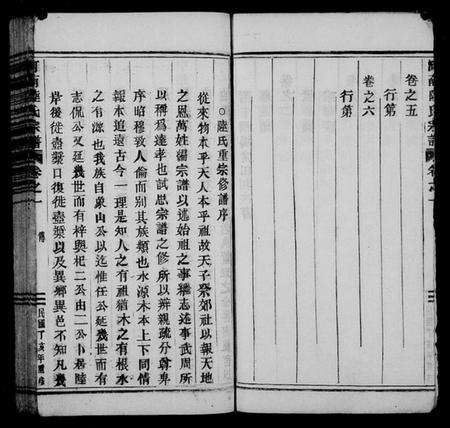 卷之五
行第
卷之六
行第
河南陸氏宗譜
卷之一
○陸氏重宗修譜序
從來物本乎天人本乎祖故天子祭郊社以報天地
之恩萬姓湯宗譜以述始祖之事繼志述事武周所
以稱為達孝也試思宗譜之修所以辨親疏分尊卑
序昭穆敦人倫而別其族類也水源木本上下同情
報本追遠古今一理是知人之有祖猶木之有根水
之有源也我族自象山公以迄惟任公延幾世而有
志侃公又延幾世而有梓與杞二公由二公卜居陸
岸後徙壺漿口復徙壺漿以及異鄉異邑不知凡幾
河南陸氏宗譜
卷之一
民國丁亥年重修